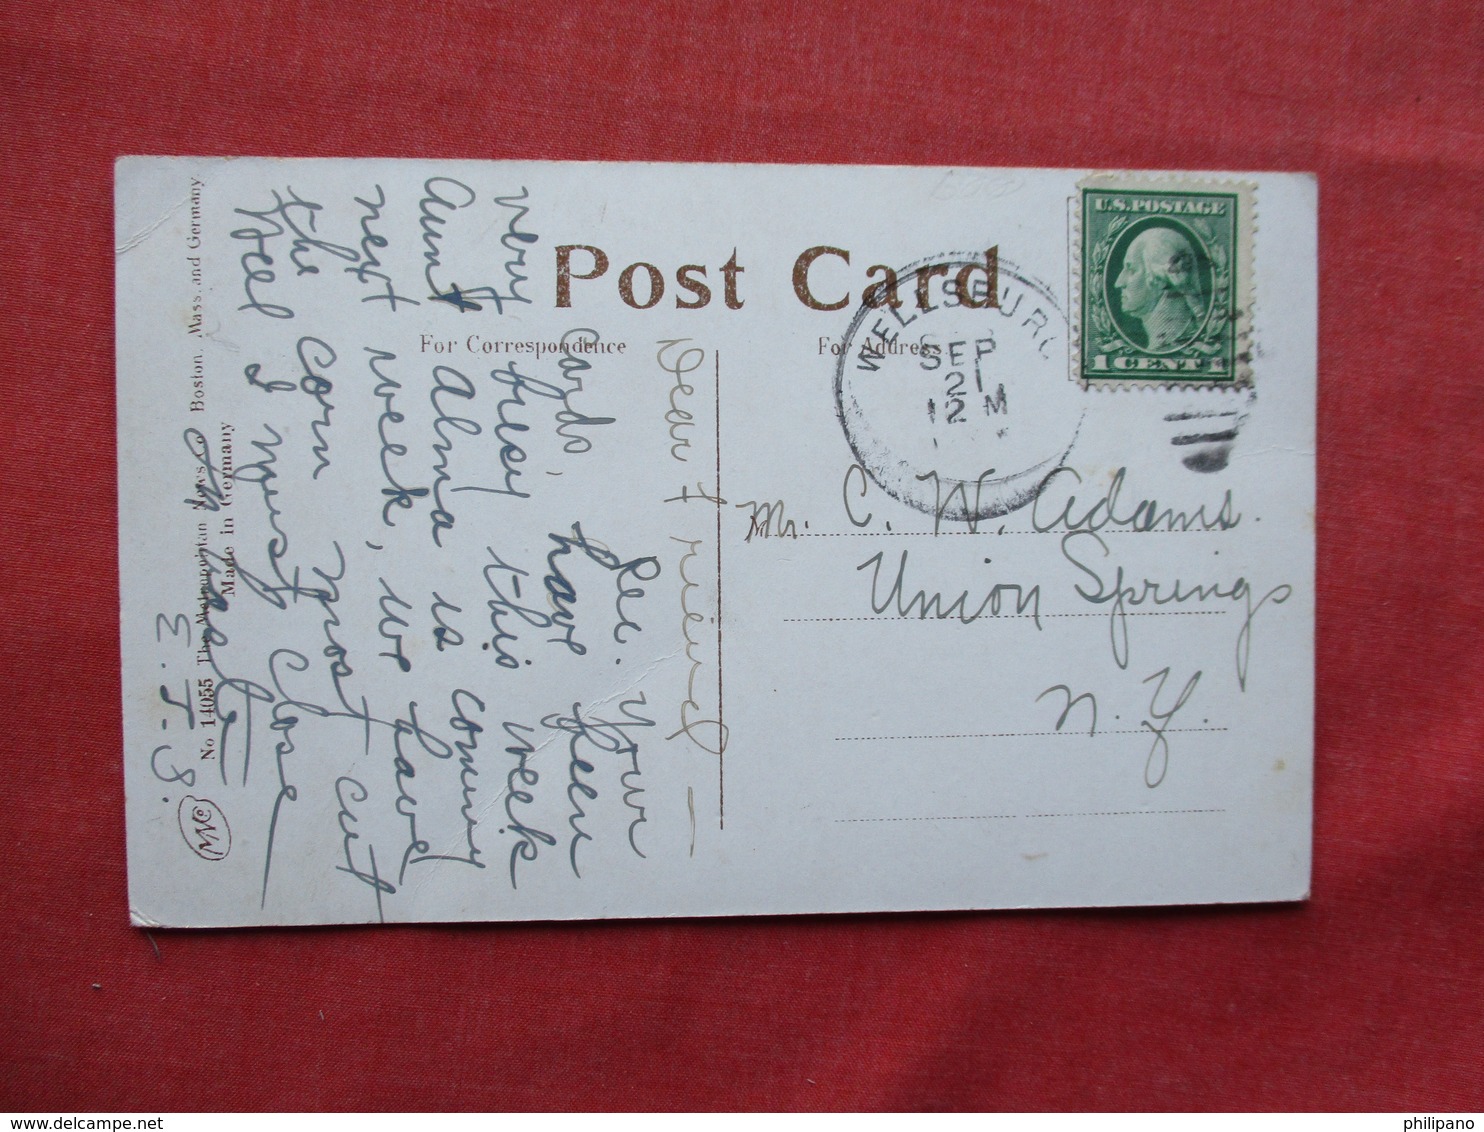 Post Card
For Correspondence
For Address
U.S. POSTAGE
1 CENT 1
WELLSBURG
SEP
21
12 M
Mr. C. W. Adams.
Union Springs
N. Y.
Dear Friend —
Rec. your
cards, have been
very busy this week
Aunt Alma is coming
next week, we have
the corn most cut
Well I must close
E. J. S.
No 14055 The Metropolitan News Co Boston, Mass. and Germany
Made in Germany
philipano